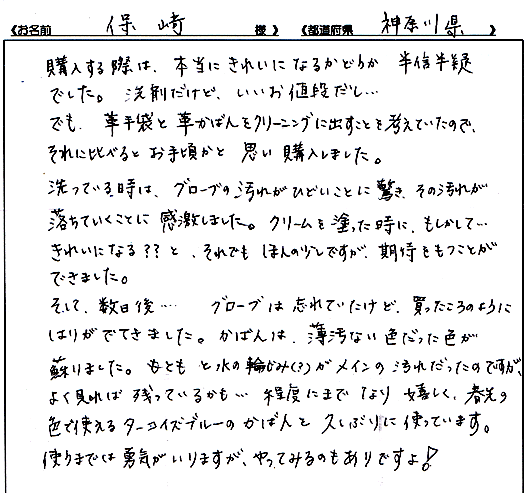 《お名前 保崎 様》《都道府県 神奈川県 》
購入する際は、本当にきれいになるかどうか 半信半疑
でした。洗剤だけど、いいお値段だし…
でも、革手袋と革かばんをクリーニングに出すことを考えていたので、
それに比べるとお手頃かと 思い購入しました。
洗っている時は、グローブの汚れがひどいことに驚き、その汚れが
落ちていくことに感激しました。クリームを塗った時に、もしかして…
きれいになる??と、それでもほんの少しですが、期待をもつことが
できました。
そして、数日後…… グローブは忘れていたけど、買ったころのように
はりがでてきました。かばんは、薄汚ない色だった色が
蘇りました。もともと水の輪じみ(?)がメインの汚れだったのですが、
よく見れば残っているかも… 程度にまでなり 嬉しく、春先の
色で使えるターコイズブルーのかばんと久しぶりに使っています。
使うまでは勇気がいりますが、やってみるのもありですよ!